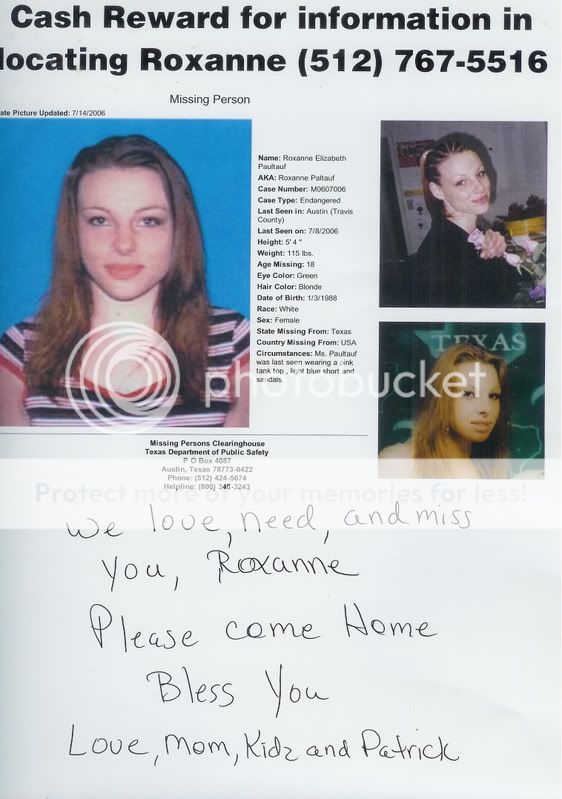 Cash Reward for information in
locating Roxanne (512) 767-5516
Missing Person
ate Picture Updated: 7/14/2006
Name: Roxanne Elizabeth
Paultauf
AKA: Roxanne Paltauf
Case Number: M0607006
Case Type: Endangered
Last Seen in: Austin (Travis
County)
Last Seen on: 7/8/2006
Height: 5' 4 "
Weight: 115 lbs.
Age Missing: 18
Eye Color: Green
Hair Color: Blonde
Date of Birth: 1/3/1988
Race: White
Sex: Female
State Missing From: Texas
Country Missing From: USA
Circumstances: Ms. Paultauf
was last seen wearing a pink
tank top , light blue short and
sandals.
TEXAS
photobucket
Missing Persons Clearinghouse
Texas Department of Public Safety
P O Box 4087
Austin, Texas 78773-0422
Phone: (512) 424-5074
Helpline: (800) 346-3243
Protect more of your memories for less!
We love, need, and miss
you, Roxanne
Please come Home
Bless You
Love, Mom, Kidz and Patrick